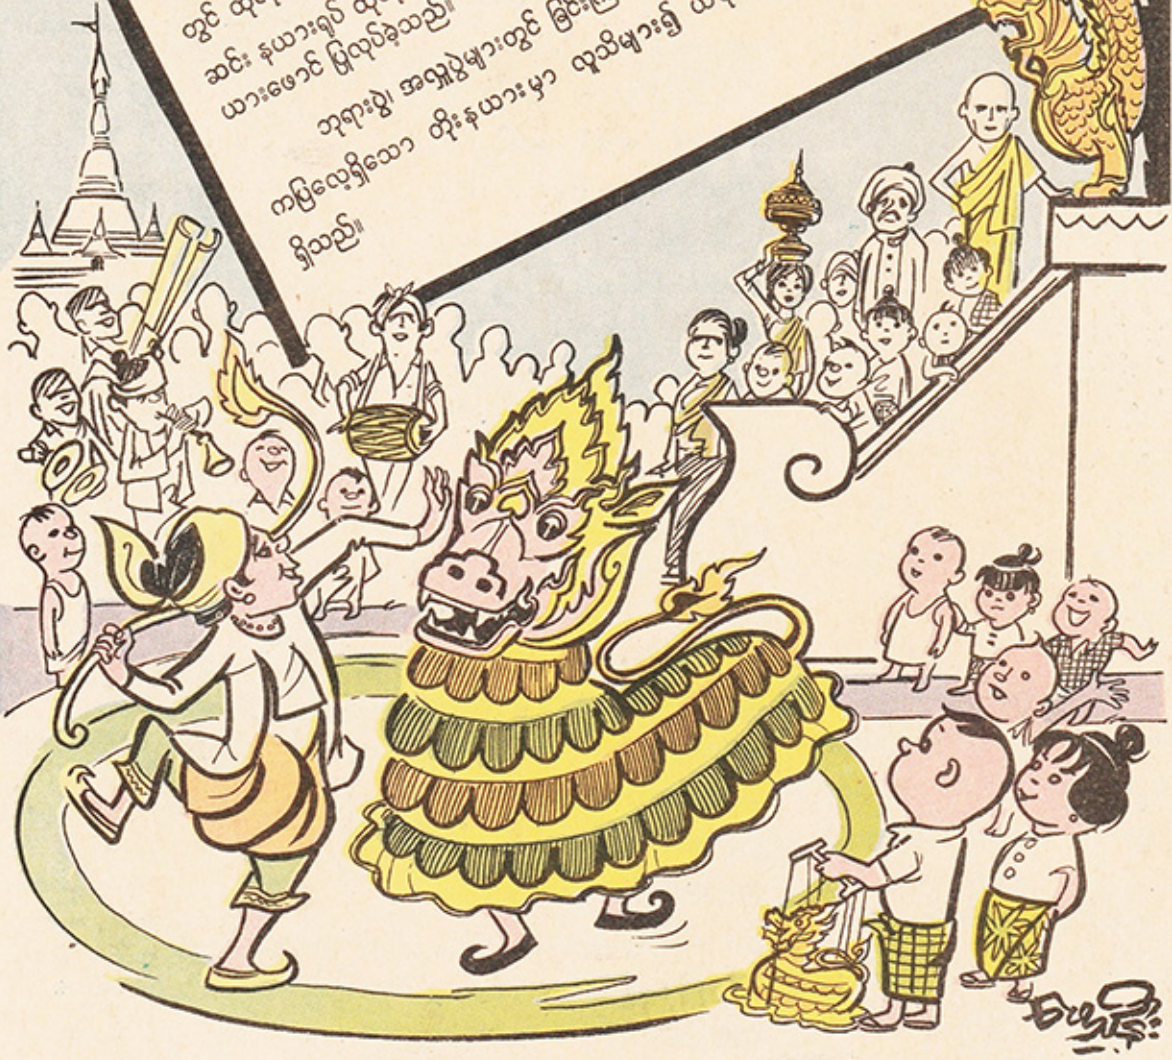 တွင်
ဆင်း နယားရုပ်
ယားဖောင် ပြုလုပ်ခဲ့သည်။
ဘုရားပွဲ၊ အလှူပွဲများတွင်
ကပြလေ့ရှိသော တိုးနယားမှာ လူသိများ၍
ရှိသည်။